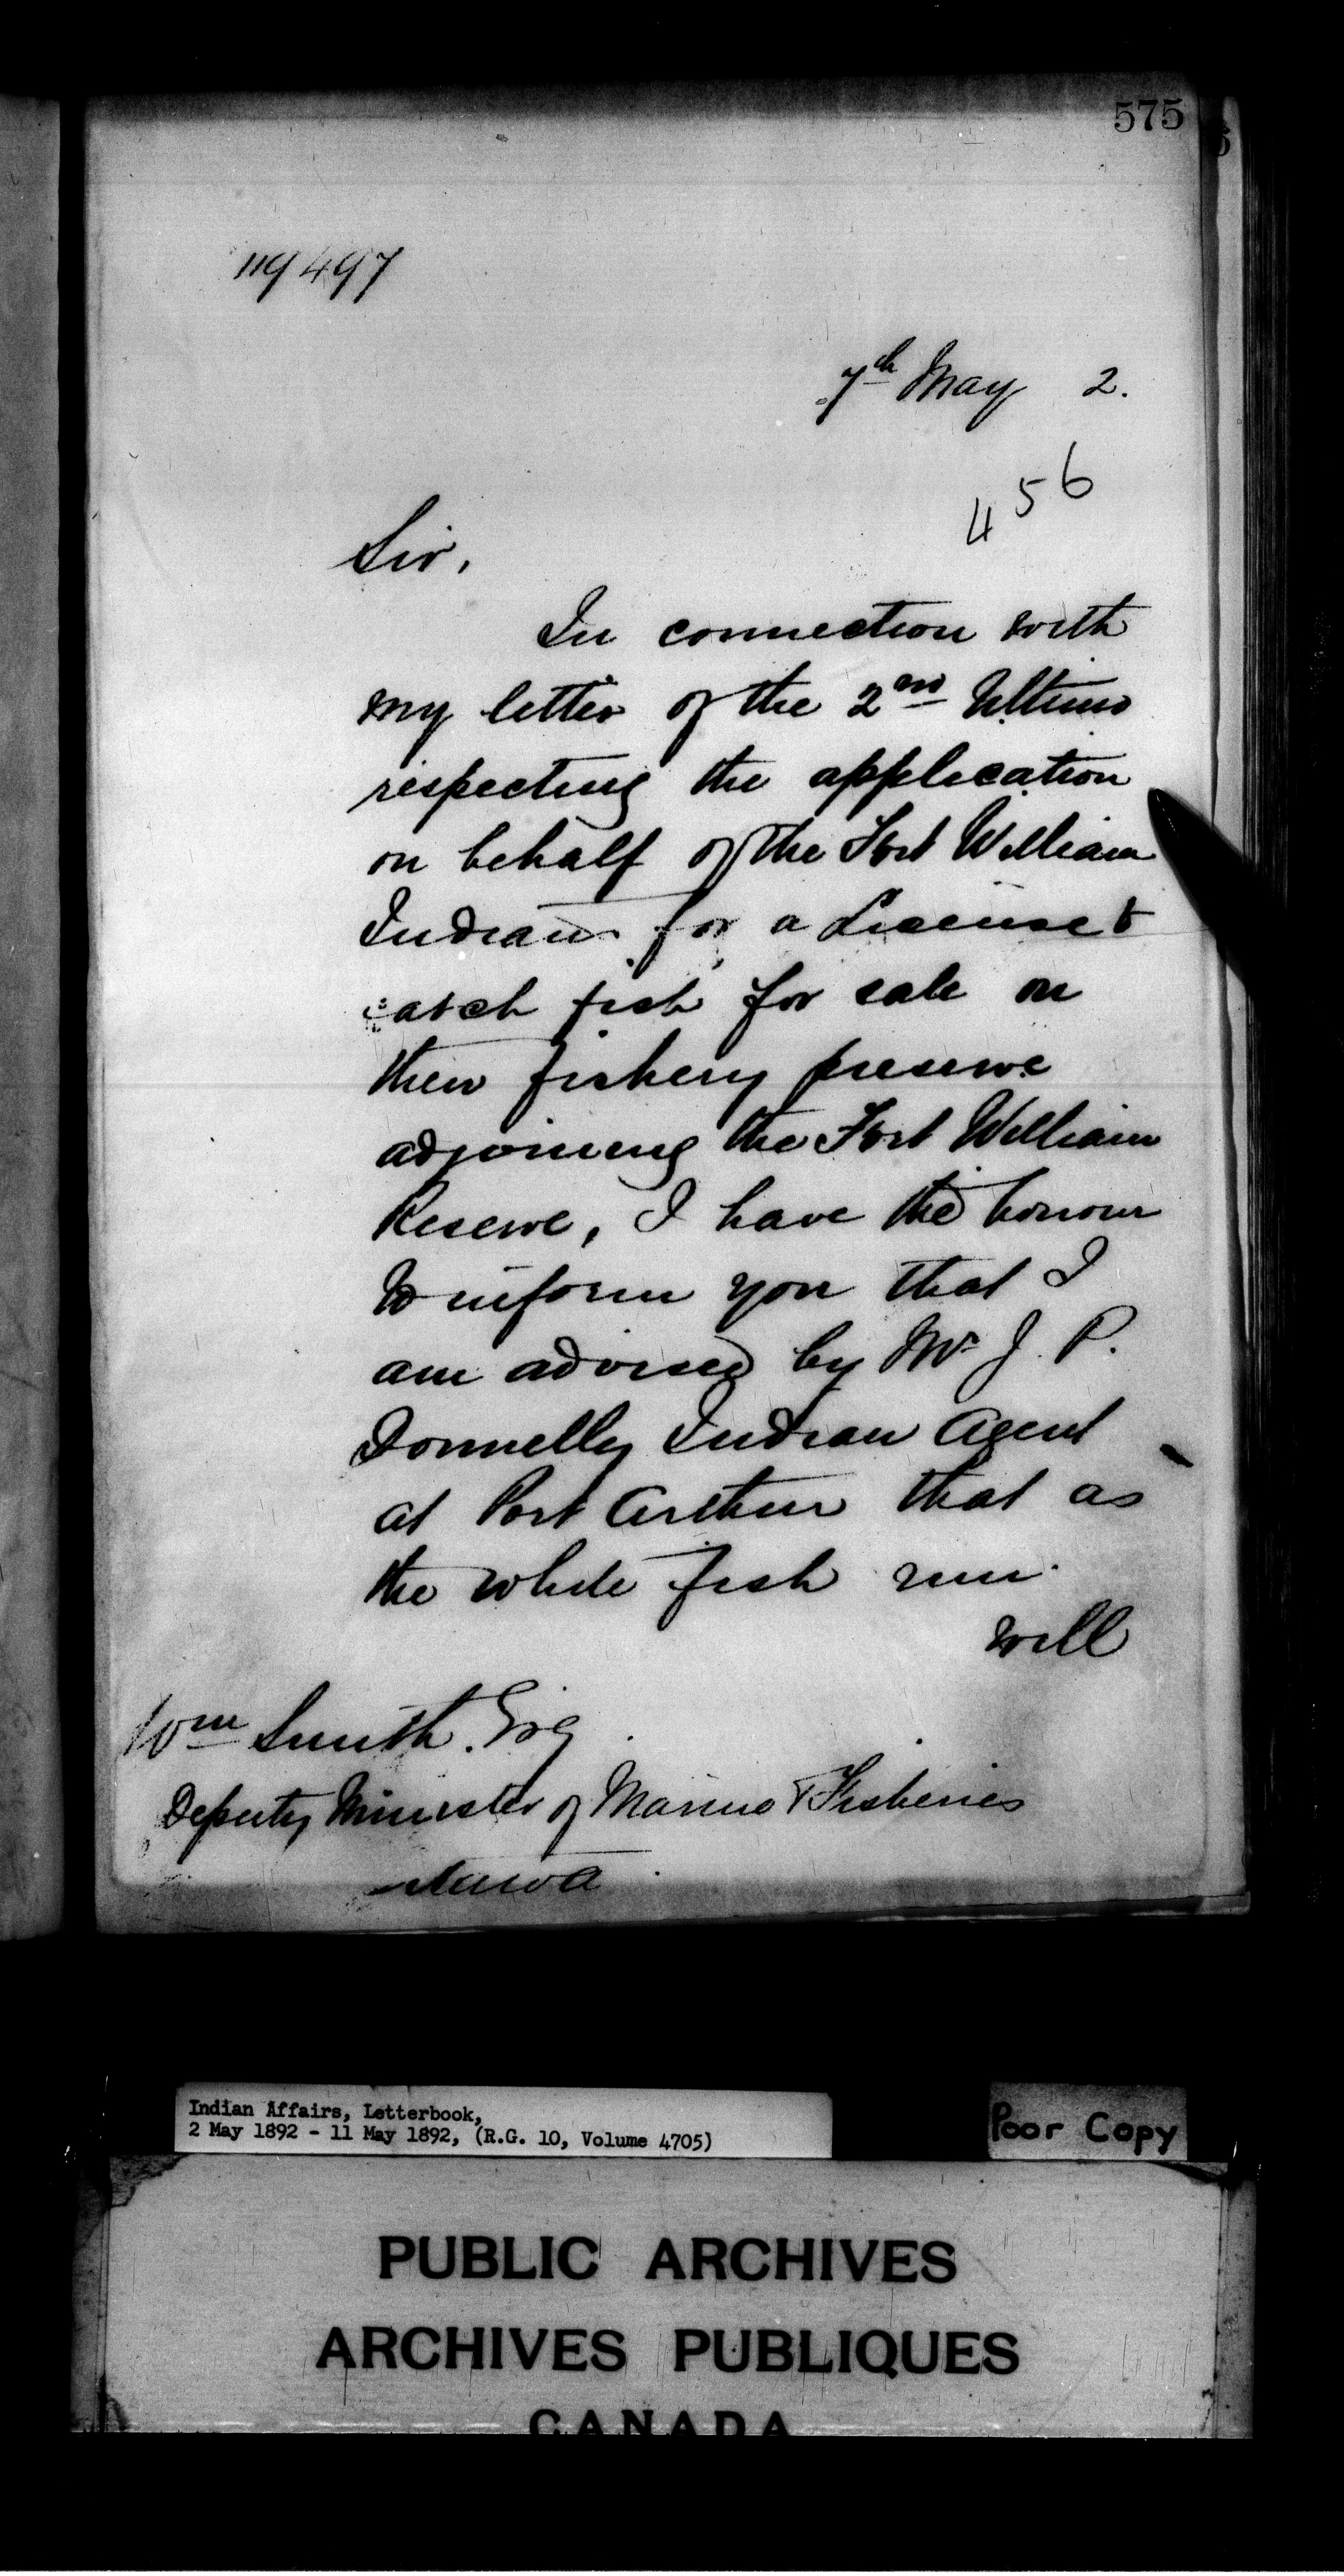 575
119497
7th May 2.
456
Sir,
In connection with
my letter of the 2nd Ultimo
respecting the application
on behalf of the Fort William
Indians for a License to
catch fish for sale on
their fishery preserve
adjoining the Fort William
Reserve, I have the honour
to inform you that I
am advised by Mr J. P.
Donnelly Indian Agent
at Port Arthur that as
the white fish run
will
Wm Smith. Esq
Deputy Minister of Marine & Fisheries
Ottawa
Indian Affairs, Letterbook,
2 May 1892 - 11 May 1892, (R.G. 10, Volume 4705)
Poor Copy
PUBLIC ARCHIVES
ARCHIVES PUBLIQUES
CANADA